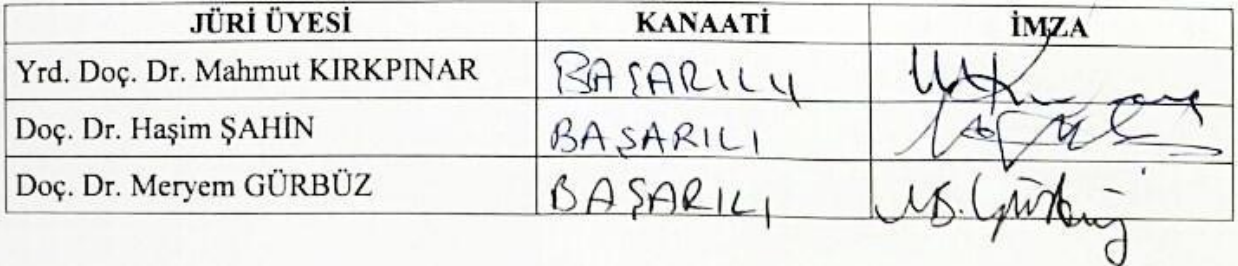 JÜRİ ÜYESİ KANAATİ İMZA
Yrd. Doç. Dr. Mahmut KIRKPINAR BAŞARILI
Doç. Dr. Haşim ŞAHİN BAŞARILI
Doç. Dr. Meryem GÜRBÜZ BAŞARILI